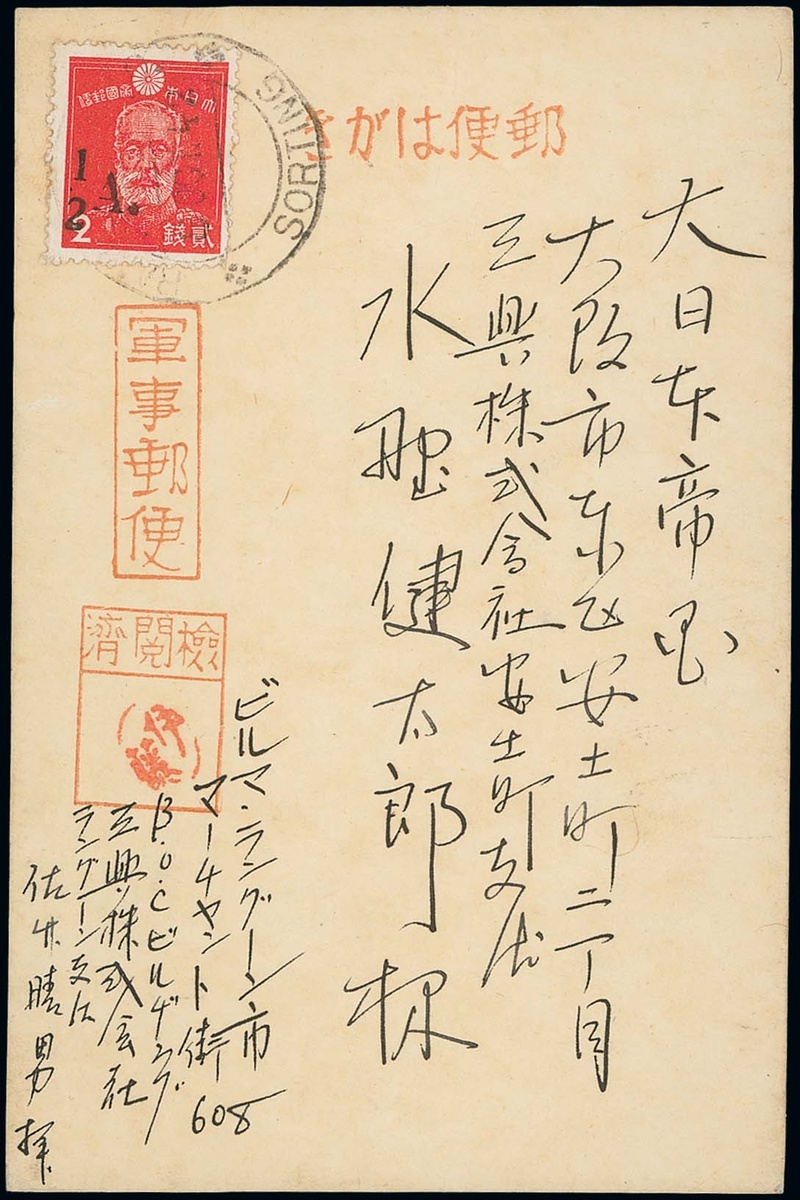 郵便はがき
大日本帝國郵便
1/2 A.
2
貳錢
SORTING
軍事郵便
檢閲濟
伊藤
大日本帝国
大阪市東区安土町二丁目
三興株式会社安土町支店
水野健太郎様
ビルマ・ラングーン市
マーチャント街 608
B.O.Cビルヂング
三興株式会社
ラングーン支店